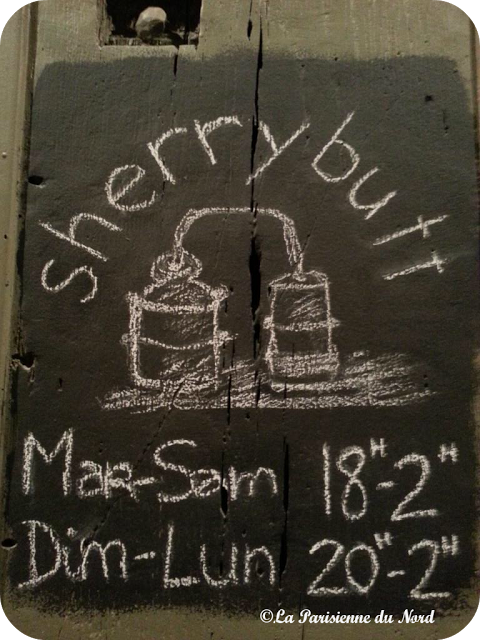 sherrybutt
Mar-Sam 18H-2H
Dim-Lun 20H-2H
©La Parisienne du Nord